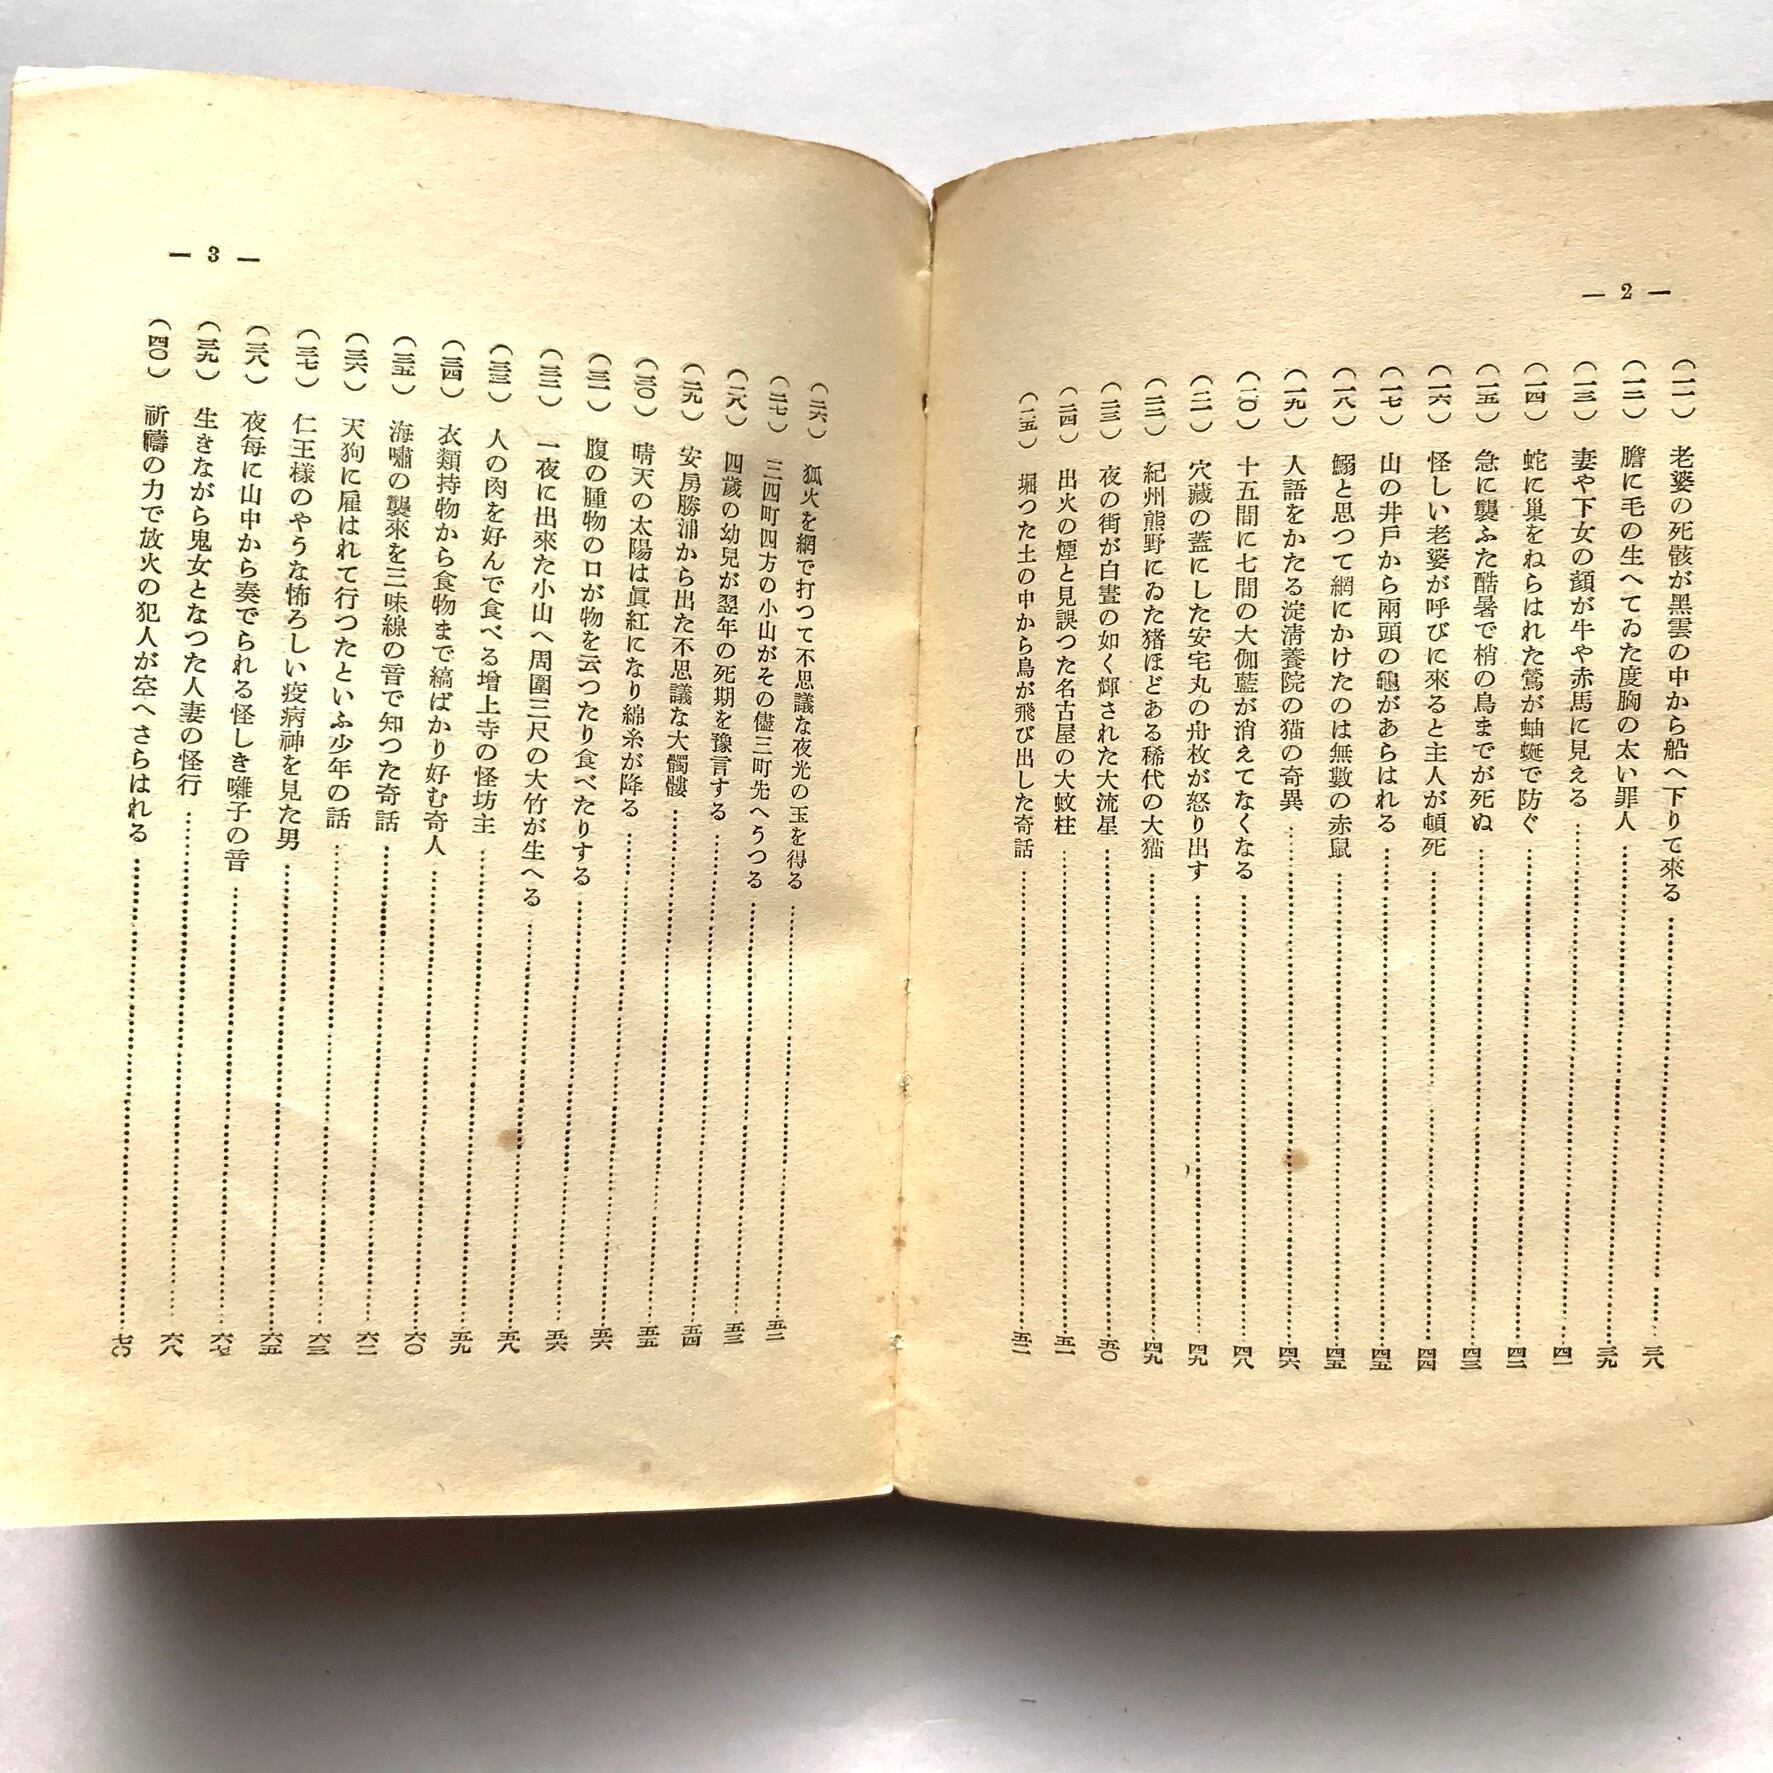 — 2 —
（一一）　老婆の死骸が黑雲の中から船へ下りて來る……三八
（一二）　膽に毛の生へてゐた度胸の太い罪人……三九
（一三）　妻や下女の顏が牛や赤馬に見える……四一
（一四）　蛇に巢をねらはれた鶯が蚰蜒で防ぐ……四二
（一五）　急に襲ふた酷暑で梢の鳥までが死ぬ……四三
（一六）　怪しい老婆が呼びに來ると主人が頓死……四四
（一七）　山の井戶から兩頭の龜があらはれる……四五
（一八）　鰯と思つて網にかけたのは無數の赤鼠……四五
（一九）　人語をかたる淀淸養院の猫の奇異……四六
（二〇）　十五間に七間の大伽藍が消えてなくなる……四八
（二一）　穴藏の蓋にした安宅丸の舟枚が怒り出す……四九
（二二）　紀州熊野にゐた猪ほどある稀代の大猫……四九
（二三）　夜の街が白晝の如く輝された大流星……五〇
（二四）　出火の煙と見誤つた名古屋の大蚊柱……五一
（二五）　堀つた土の中から鳥が飛び出した奇話……五二
— 3 —
（二六）　狐火を網で打つて不思議な夜光の玉を得る……五二
（二七）　三四町四方の小山がその儘三町先へうつる……五三
（二八）　四歲の幼兒が翌年の死期を豫言する……五四
（二九）　安房勝浦から出た不思議な大髑髏……五五
（三〇）　晴天の太陽は眞紅になり綿糸が降る……五六
（三一）　腹の腫物の口が物を云つたり食べたりする……五六
（三二）　一夜に出來た小山へ周圍三尺の大竹が生へる……五八
（三三）　人の肉を好んで食べる增上寺の怪坊主……五九
（三四）　衣類持物から食物まで縞ばかり好む奇人……六〇
（三五）　海嘯の襲來を三味線の音で知つた奇話……六二
（三六）　天狗に雇はれて行つたといふ少年の話……六三
（三七）　仁王樣のやうな怖ろしい疫病神を見た男……六五
（三八）　夜每に山中から奏でられる怪しき囃子の音……六七
（三九）　生きながら鬼女となつた人妻の怪行……六八
（四〇）　祈禱の力で放火の犯人が空へさらはれる……七〇